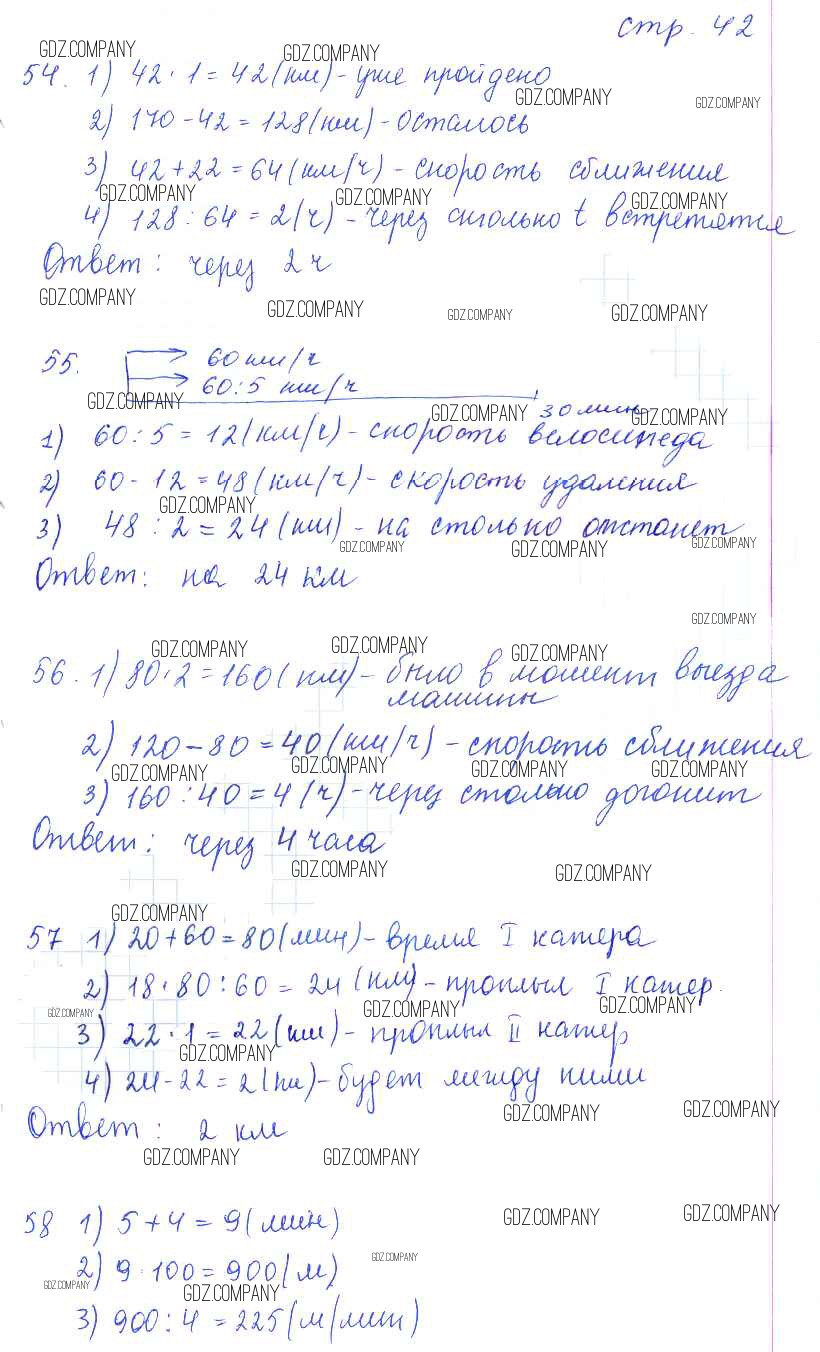 стр. 42
GDZ.COMPANY GDZ.COMPANY
54. 1) 42 · 1 = 42 (км) - уже пройдено
GDZ.COMPANY GDZ.COMPANY
2) 170 - 42 = 128 (км) - осталось
3) 42 + 22 = 64 (км/ч) - скорость сближения
GDZ.COMPANY GDZ.COMPANY GDZ.COMPANY
4) 128 : 64 = 2 (ч) - через сколько t встретятся
Ответ: через 2 ч
GDZ.COMPANY GDZ.COMPANY GDZ.COMPANY GDZ.COMPANY
55. 60 км/ч
60:5 км/ч
GDZ.COMPANY GDZ.COMPANY 30 мин GDZ.COMPANY
1) 60 : 5 = 12 (км/ч) - скорость велосипеда
2) 60 - 12 = 48 (км/ч) - скорость удаления
GDZ.COMPANY
3) 48 : 2 = 24 (км) - на столько отстанет
GDZ.COMPANY GDZ.COMPANY GDZ.COMPANY
Ответ: на 24 км
GDZ.COMPANY
GDZ.COMPANY GDZ.COMPANY GDZ.COMPANY
56. 1) 80 · 2 = 160 (км) - было в момент выезда
машины
2) 120 - 80 = 40 (км/ч) - скорость сближения
GDZ.COMPANY GDZ.COMPANY GDZ.COMPANY GDZ.COMPANY
3) 160 : 40 = 4 (ч) - через столько догонит
Ответ: через 4 часа
GDZ.COMPANY GDZ.COMPANY
GDZ.COMPANY
57 1) 20 + 60 = 80 (мин) - время I катера
2) 18 · 80 : 60 = 24 (км) - проплыл I катер.
GDZ.COMPANY GDZ.COMPANY GDZ.COMPANY
3) 22 · 1 = 22 (км) - проплыл II катер
GDZ.COMPANY
4) 24 - 22 = 2 (км) - будет между ними
GDZ.COMPANY GDZ.COMPANY
Ответ: 2 км
GDZ.COMPANY GDZ.COMPANY
GDZ.COMPANY GDZ.COMPANY
58 1) 5 + 4 = 9 (мин)
GDZ.COMPANY
2) 9 · 100 = 900 (м)
GDZ.COMPANY GDZ.COMPANY
3) 900 : 4 = 225 (м/мин)